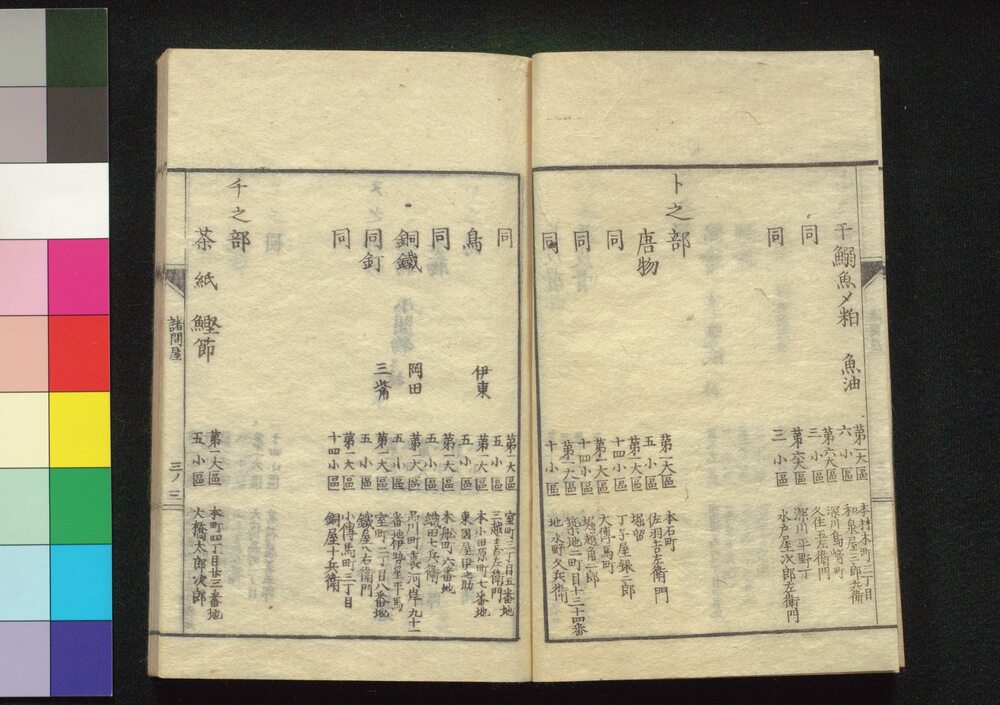 干鰯魚〆粕　魚油
第一大區
六小區
本材木町二丁目
和泉屋三郎兵衛
同
第六大區
三小區
深川島嵜町
久住五左衛門
同
第六大區
三小區
深川平野丁
水戸屋次郎左衛門
ト之部
唐物
第一大區
五小區
本石町
佐羽吉左衛門
同
第一大區
十四小區
堀留
丁子屋銀二郎
同
第一大區
十四小區
大傳馬町
堀越角二郎
同
第二大區
十小區
築地二町目十三十四番
地水野久兵衛
同
第一大區
五小區
室町三丁目五番地
三越
左衛門
鳥
伊東
第一大區
五小區
本小田原町七番地
東國屋伊之助
同
第一大區
五小區
本船町六番地
鐵田七兵衛
銅鐵
岡田
第一大區
五小區
品川町裏河岸九十一
番地伊勢屋平馬
同釘
三觜
第一大區
五小區
室町一丁目八番地
鐵屋八右衛門
同
第一大區
十四小區
小傳馬町三丁目
銅屋十兵衛
チ之部
茶　紙　鰹節
第一大區
五小區
本町四丁目廿三番地
大橋太郎次郎
諸問屋
三ノ三